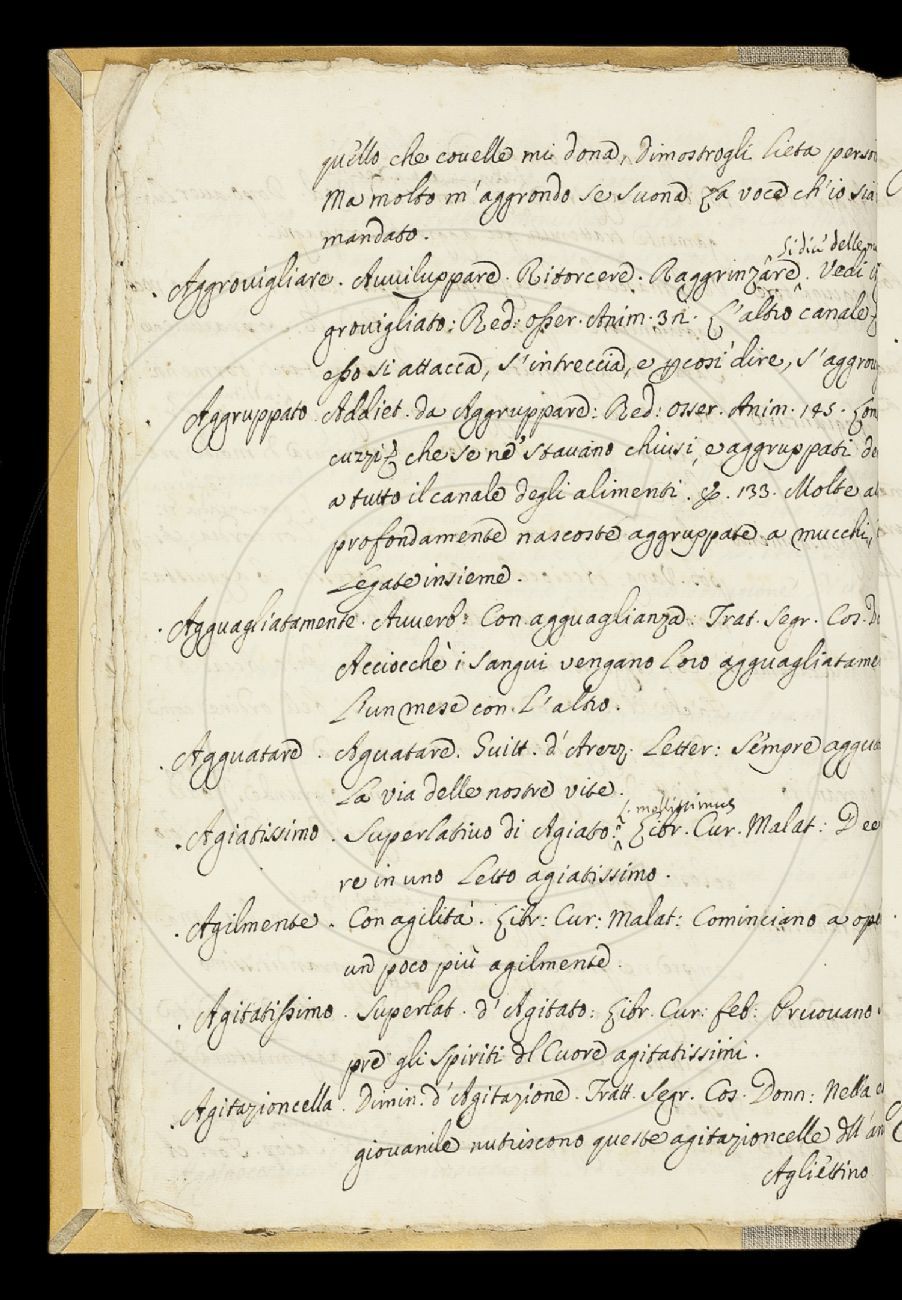 quello che covelle mi dona, dimostrogli lieta
Ma molto m'aggrondo se suona la voce ch'io sia
mandato.
si dice delle
Aggrovigliare. Avviluppare. Ritorcere. Raggrinzare. Vedi
grovigliato: Red: osser. Anim. 3 L'altro canale
esso si attacca, s'intreccia, e cosi dire, s'aggrov
Aggruppato Addiet. da Aggruppare: Red: osser. Anim. 145.
che se ne stavano chiusi, e aggruppati
a tutto il canale degli alimenti. E. 133. Molte
profondamente nascoste aggruppate a mucchi,
Legate insieme.
Agguagliatamente. Avverb: Con agguaglianza: Trat. Segr. Cos.
Acciocchè i sangui vengano loro agguagliatame
L'un mese con L'altro.
Agguatare. Aguatare. Guitt. d'Arezz. Letter: Sempre aggua
La via delle nostre vite.
Agiatissimo. Superlativo di Agiato. Libr. Cur. Malat: Dee
re in uno Letto agiatissimo.
Agilmente. Con agilità. Libr: Cur: Malat: Cominciano a
un poco più agilmente.
Agitatissimo. Superlat. d'Agitato: Libr. Cur: feb: Pruovano
pre gli Spiriti dl Cuore agitatissimi.
Agitazioncella. Dimin: d'Agitazione. Tratt. Segr. Cos. Donn: Nella
giovanile nutriscono queste agitazioncelle dll'
Agliettino